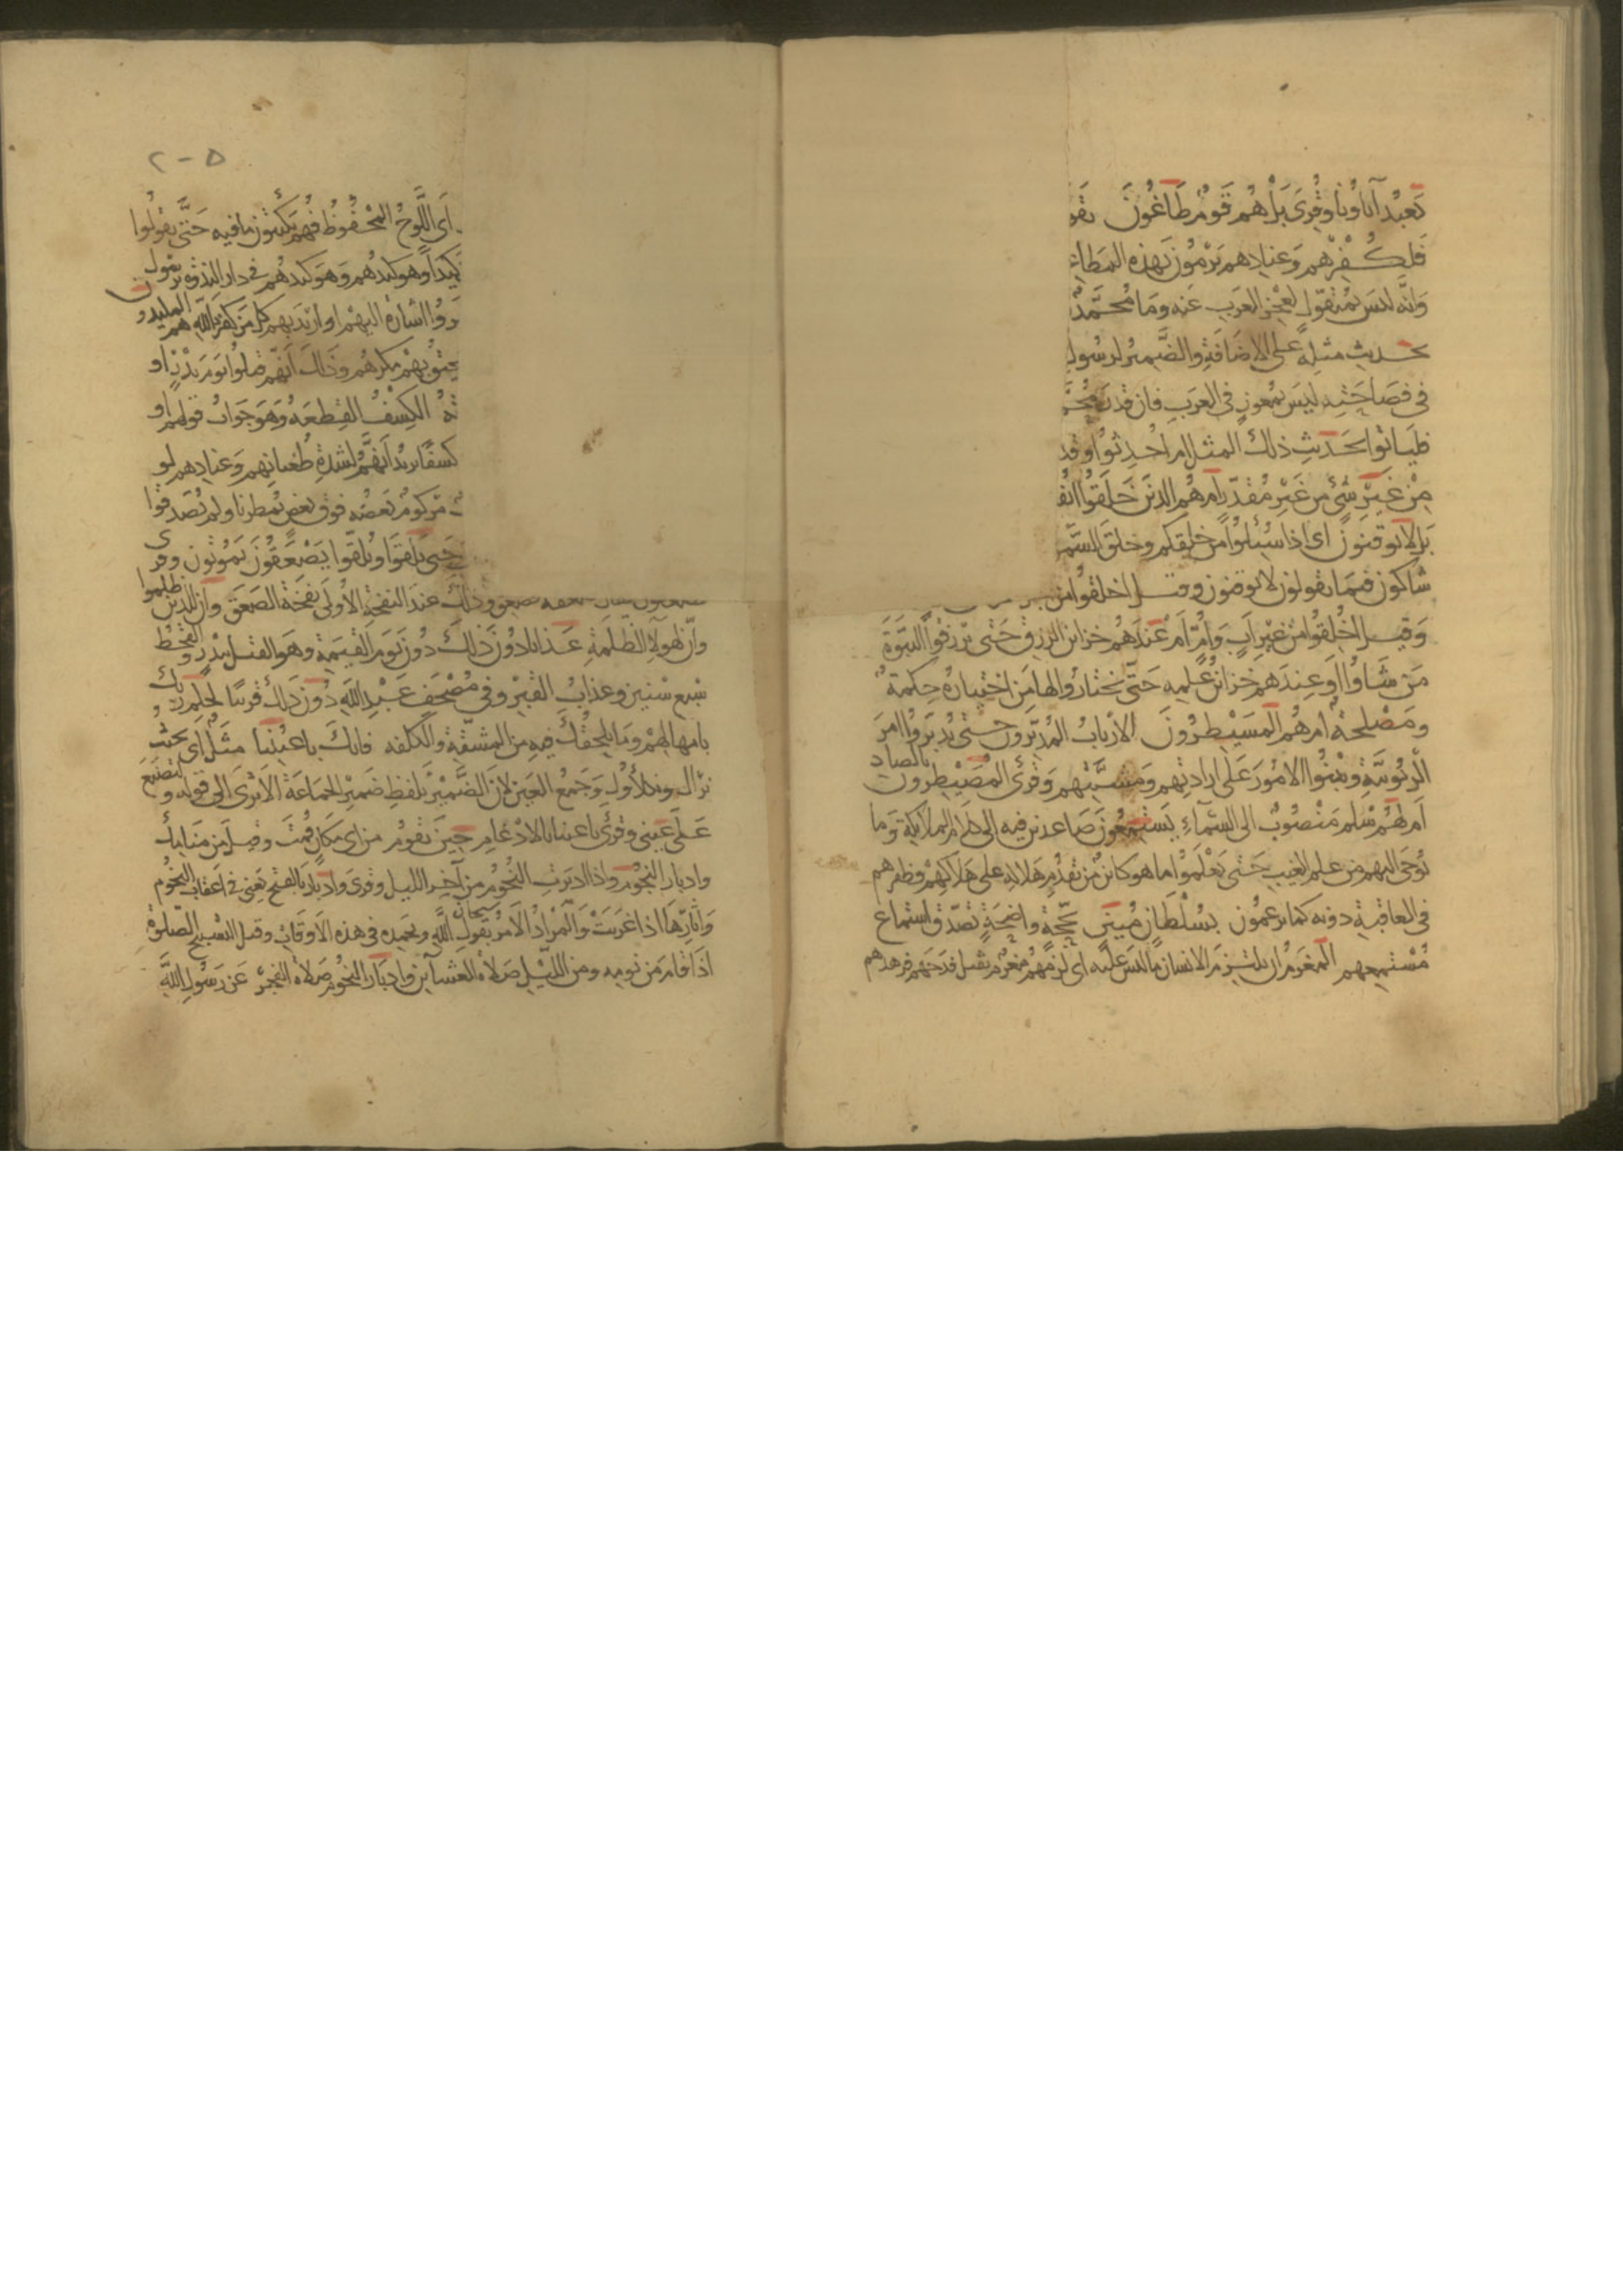 يعبد آباؤنا وقرى بل هم قوم طاغون تقو
فلكفرهم وعنادهم يرمون بهذه المطاع
وانه ليس بمتقول لعجز العرب عنه وما محمد
بحديث مثله على الاضافة والضمير لرسول
في فصاحته ليس بمعوز في العرب فان قدر محمد
فليأتوا بحديث ذلك المثل ام احدثوا وقد
من غير شيء من غير مقدر ام هم الذين خلقوا انف
بل لا يوقنون اى اذا سئلوا من خلقكم وخلق السم
شاكون فيما يقولون لا يوقنون وقيل اخلقوا من
وقيل اخلقوا من غير اب وام ام عندهم خزائن الرزق حتى يرزقوا النبوة
من شاؤا او عندهم خزائن علمه حتى يختاروا لها من اختياره حكمة
ومصلحة ام هم المسيطرون الارباب المدبرون حتى يدبروا امر
الربوبية ويبنوا الامور على ارادتهم ومشيتهم وقرى المصيطرون بالصاد
ام لهم سلم منصوب الى السماء يستمعون صاعدين فيه الى كلام الملائكة وما
يوحى اليهم من علم الغيب حتى يعلموا ما هو كائن من تقدم هلاكه على هلاكهم وظفرهم
في العاقبة دونه كما يزعمون بسلطان مبين بحجة واضحة تصدق استماع
مستمعهم المغرم ان يلتزم الانسان ما ليس عليه اى لزمهم مغرم ثقيل فدحهم فزهدهم
٢٠٥
اى اللوح المحفوظ فهم يكتبون ما فيه حتى يقولوا
كيدا وهو كيدهم وهو كيدهم في دار الندوة برسول
روا اشارة اليهم او اريد بهم كل من كفر بالله هم المكيدون
يحيق بهم مكرهم وذلك انهم قتلوا يوم بدر او
ته الكسف القطعة وهو جواب قولهم او
كسفا يريد انهم لشدة طغيانهم وعنادهم لو
مركوم بعضه فوق بعض يمطرنا ولم يصدقوا
حتى يلاقوا ويلقوا يصعقون يموتون وقرى
وذلك عند النفخة الاولى نفخة الصعق وان للذين ظلموا
وان لهؤلاء الظلمة عذابا دون ذلك دون يوم القيمة وهو القتل ببدر والقحط
سبع سنين وعذاب القبر وفي مصحف عبد الله دون ذلك قريبا لحكم ربك
بامهالهم وما يلحقك فيه من المشقة والكلفة فانك باعيننا مثل اى بحيث
نراك ونكلأوك وجمع العين لان الضمير بلفظ ضمير الجماعة الا ترى الى قوله ولتصنع
على عيني وقرى باعينا بالادغام حين تقوم من اى مكان قمت وقيل من منامك
وادبار النجوم واذا ادبرت النجوم من آخر الليل وقرى وادبار بالفتح يعني في اعقاب النجوم
وآثارها اذا غربت والمراد الامر بقول سبحان الله وبحمده في هذه الاوقات وقيل التسبيح الصلوة
اذا قام من نومه ومن الليل صلاة العشاءين وادبار النجوم صلاة الفجر عن رسول الله